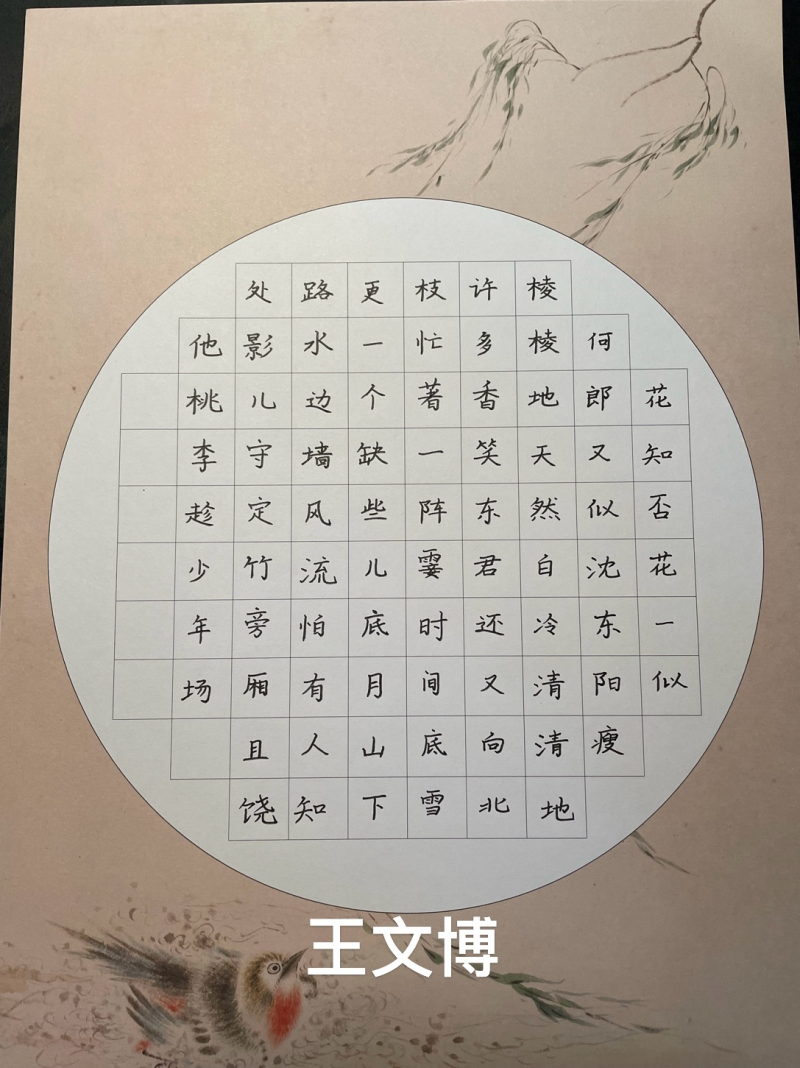 花知否花一似
何郎又似沈东阳瘦
棱棱地天然自冷清清地
许多香笑东君还又向北
枝忙著一阵霎时间底雪
更一个缺些儿底月山下
路水边墙风流怕有人知
处影儿守定竹旁厢且饶
他桃李趁少年场
王文博